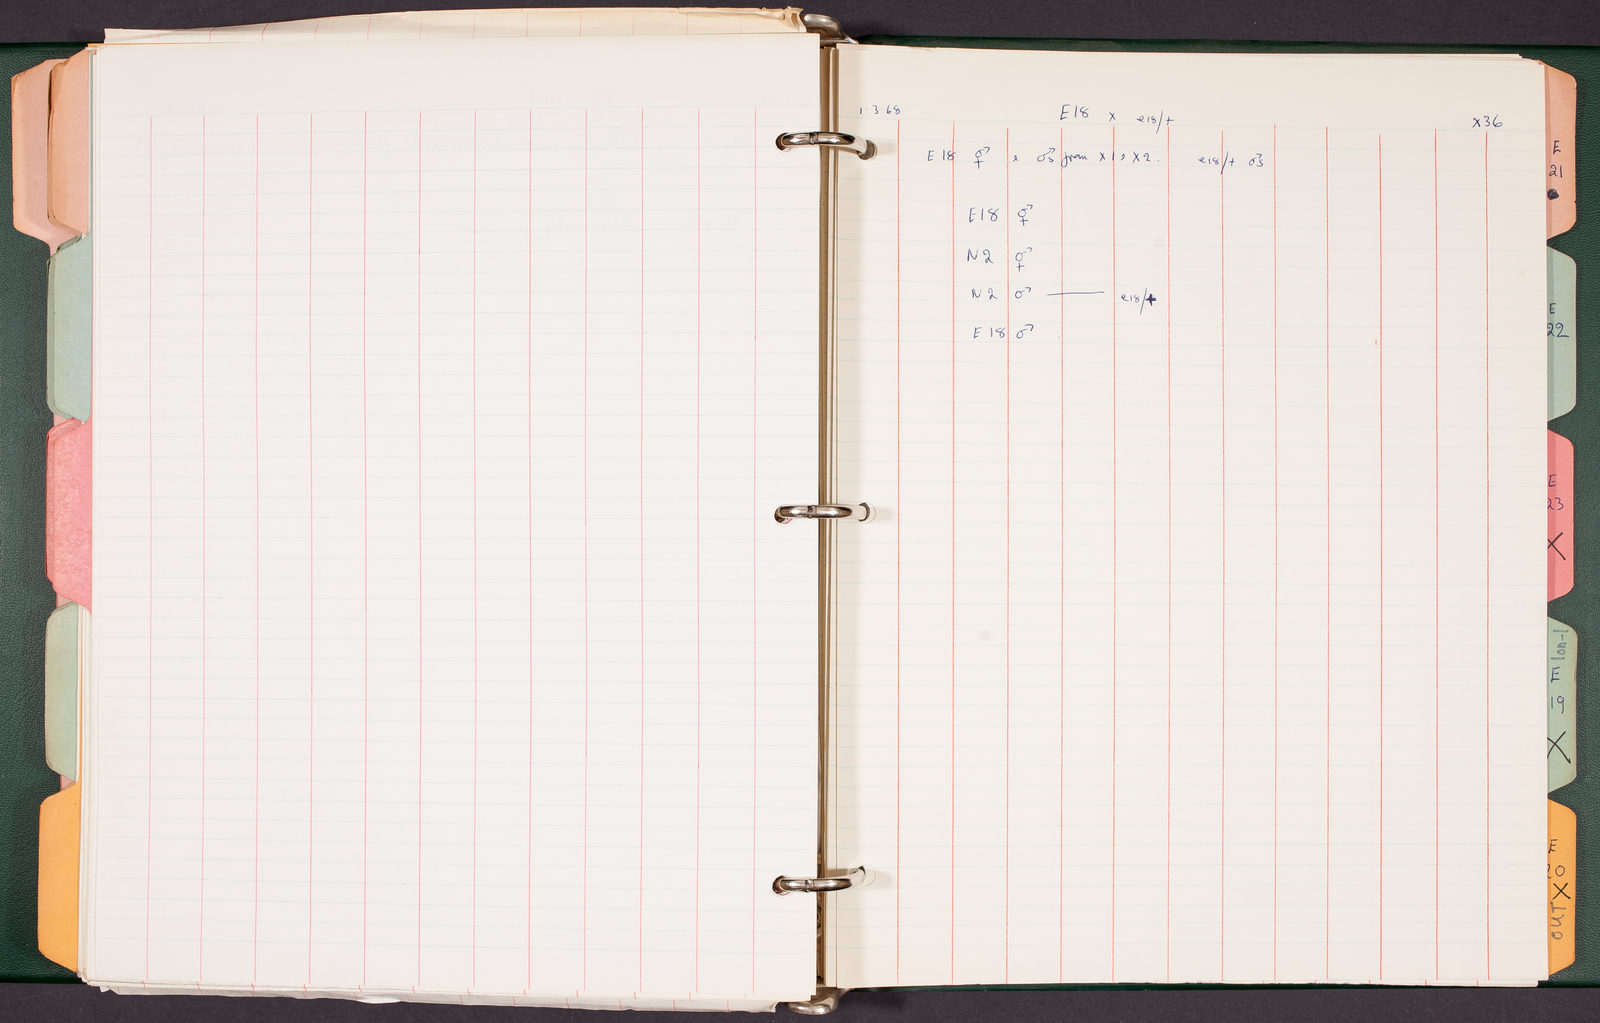 1.3.68 E18 x e18/+ X36
E18 ⚥ & ♂s from X1, X2. e18/+ ♂s
E18 ⚥
N2 ⚥
N2 ♂ — e18/+
E18 ♂
E
21
E
22
E
23
X
lon-1
E
19
X
E
20
X
OUT